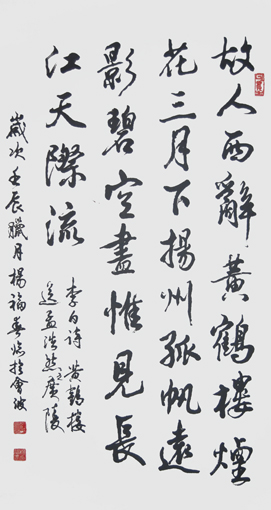 故人西辭黃鶴樓煙
花三月下揚州孤帆遠
影碧空盡惟見長
江天際流
李白詩黃鶴樓
送孟浩然之廣陵
歲次壬辰臘月楊福